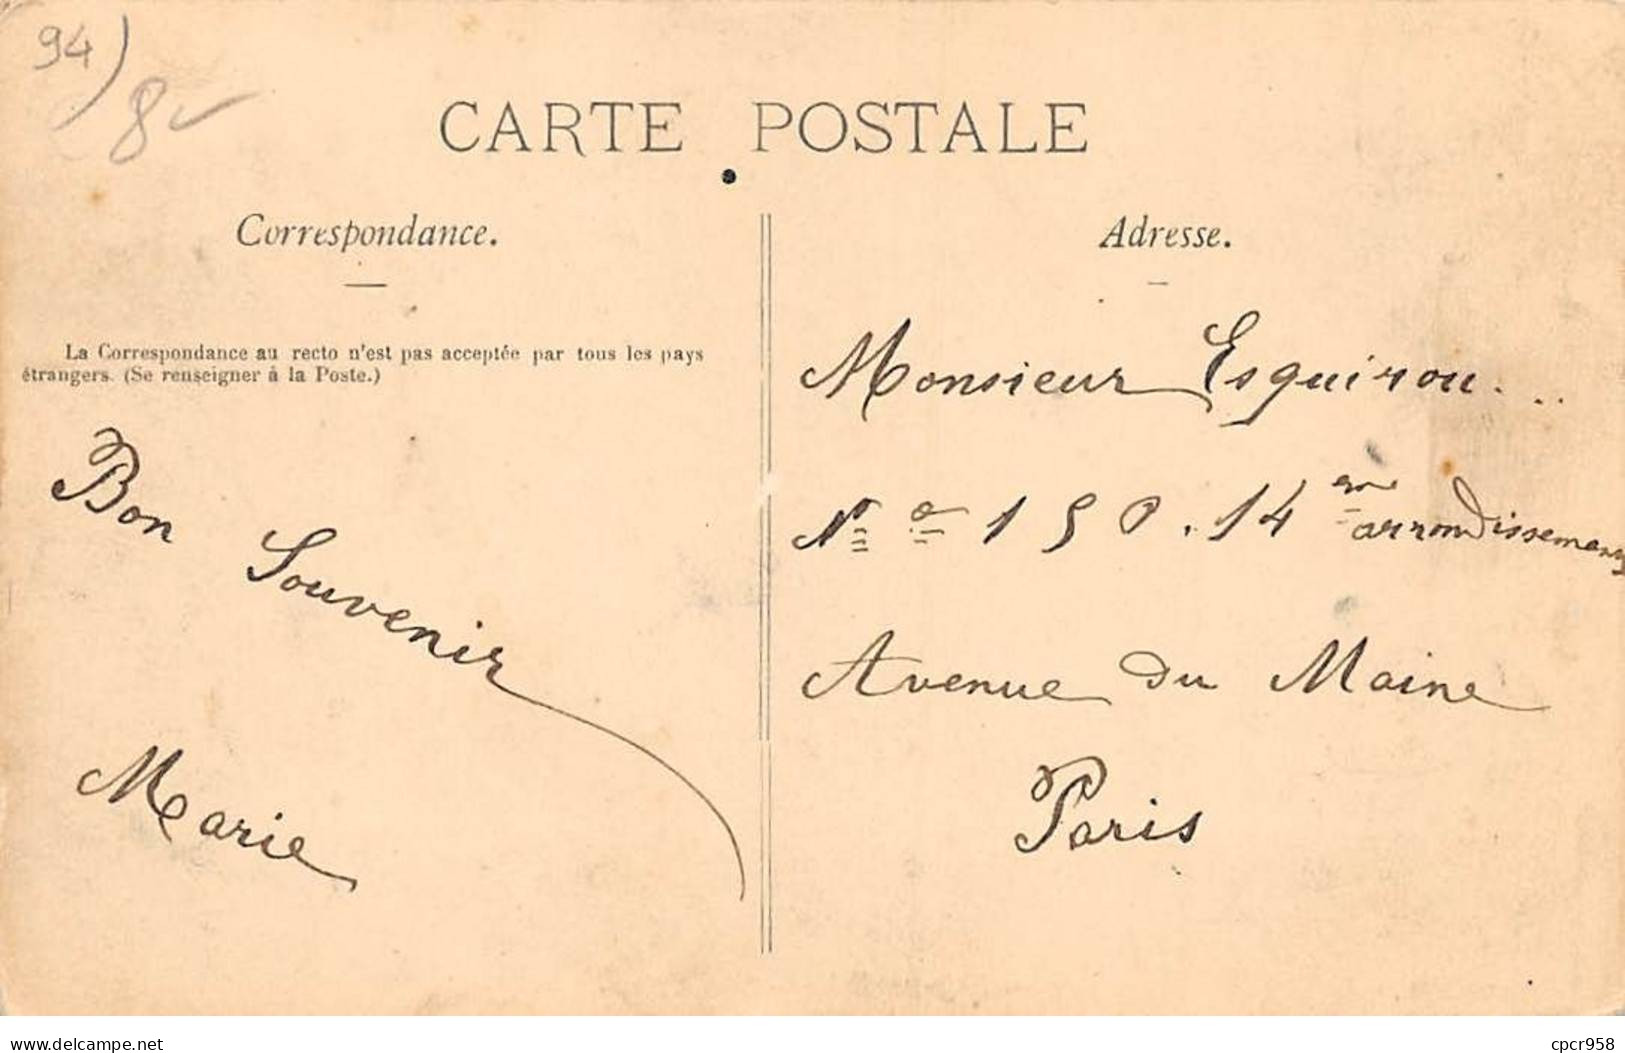 94)
8
CARTE POSTALE
Correspondance.
La Correspondance au recto n'est pas acceptée par tous les pays
étrangers. (Se renseigner à la Poste.)
Bon
Souvenir
Marie
Adresse.
Monsieur Esquirou...
No 150. 14eme arrondissement
Avenue du Maine
Paris
www.delcampe.net
cpcr958